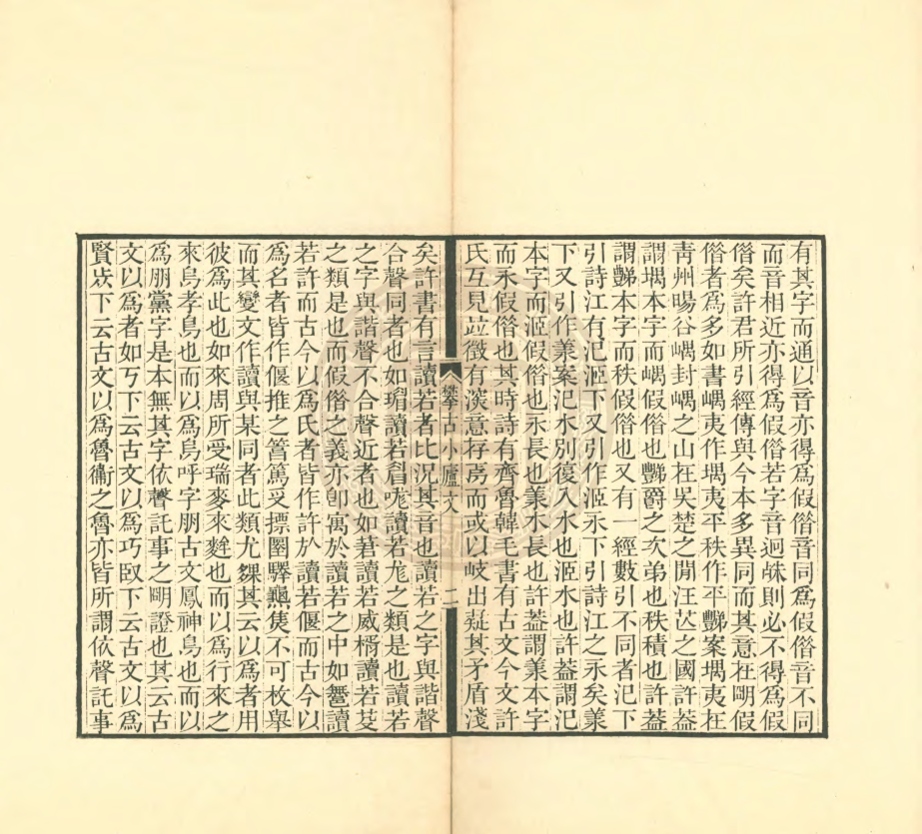 有其字而通以音亦得爲假俗音同爲假俗音不同
而音相近亦得爲假俗若字音迥殊則必不得爲假
俗矣許君所引經傳與今本多異同而其意在明假
俗者爲多如書嵎夷作堣夷平秩作平豑案堣夷在
靑州暘谷嵎封嵎之山在吳楚之閒汪芒之國許葢
謂堣本字而嵎假俗也豑爵之次弟也秩積也許葢
謂豑本字而秩假俗也又有一經數引不同者汜下
引詩江有汜洍下又引作洍永下引詩江之永矣羕
下又引作羕案汜水別復入水也洍水也許葢謂汜
本字而洍假俗也永長也羕水長也許葢謂羕本字
而永假俗也其時詩有齊魯韓毛書有古文今文許
氏互見竝徵有深意存焉而或以岐出疑其矛盾淺
攀古小廬文 二
矣許書有言讀若者比況其音也讀若之字與諧聲
合聲同者也如瑂讀若眉哤讀若尨之類是也讀若
之字與諧聲不合聲近者也如莙讀若威楈讀若芟
之類是也而假俗之義亦卽寓於讀若之中如鄦讀
若許而古今以爲氏者皆作許於讀若偃而古今以
爲名者皆作偃推之䈞篤𠬪摽圛驛㷼𤎅不可枚舉
而其變文作讀與某同者此類尤夥其云以爲者用
彼爲此也如來周所受瑞麥來麰也而以爲行來之
來烏孝鳥也而以爲烏呼字朋古文鳳神鳥也而以
爲朋黨字是本無其字依聲託事之明證也其云古
文以爲者如丂下云古文以爲巧臤下云古文以爲
賢㫺下云古文以爲魯衞之魯亦皆所謂依聲託事